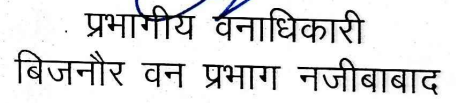 प्रभागीय वनाधिकारी
बिजनौर वन प्रभाग नजीबाबाद